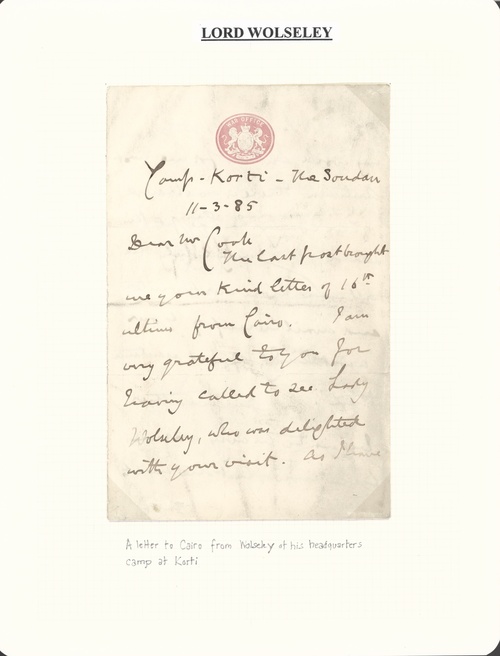 LORD WOLSELEY
WAR OFFICE
Camp - Korti - The Soudan
11-3-85
Dear Mr Cook
The last post brought
me your kind letter of 16th
ultimo from Cairo. I am
very grateful to you for
having called to see Lady
Wolseley, who was delighted
with your visit. As I have
A letter to Cairo from Wolseley at his headquarters
camp at Korti